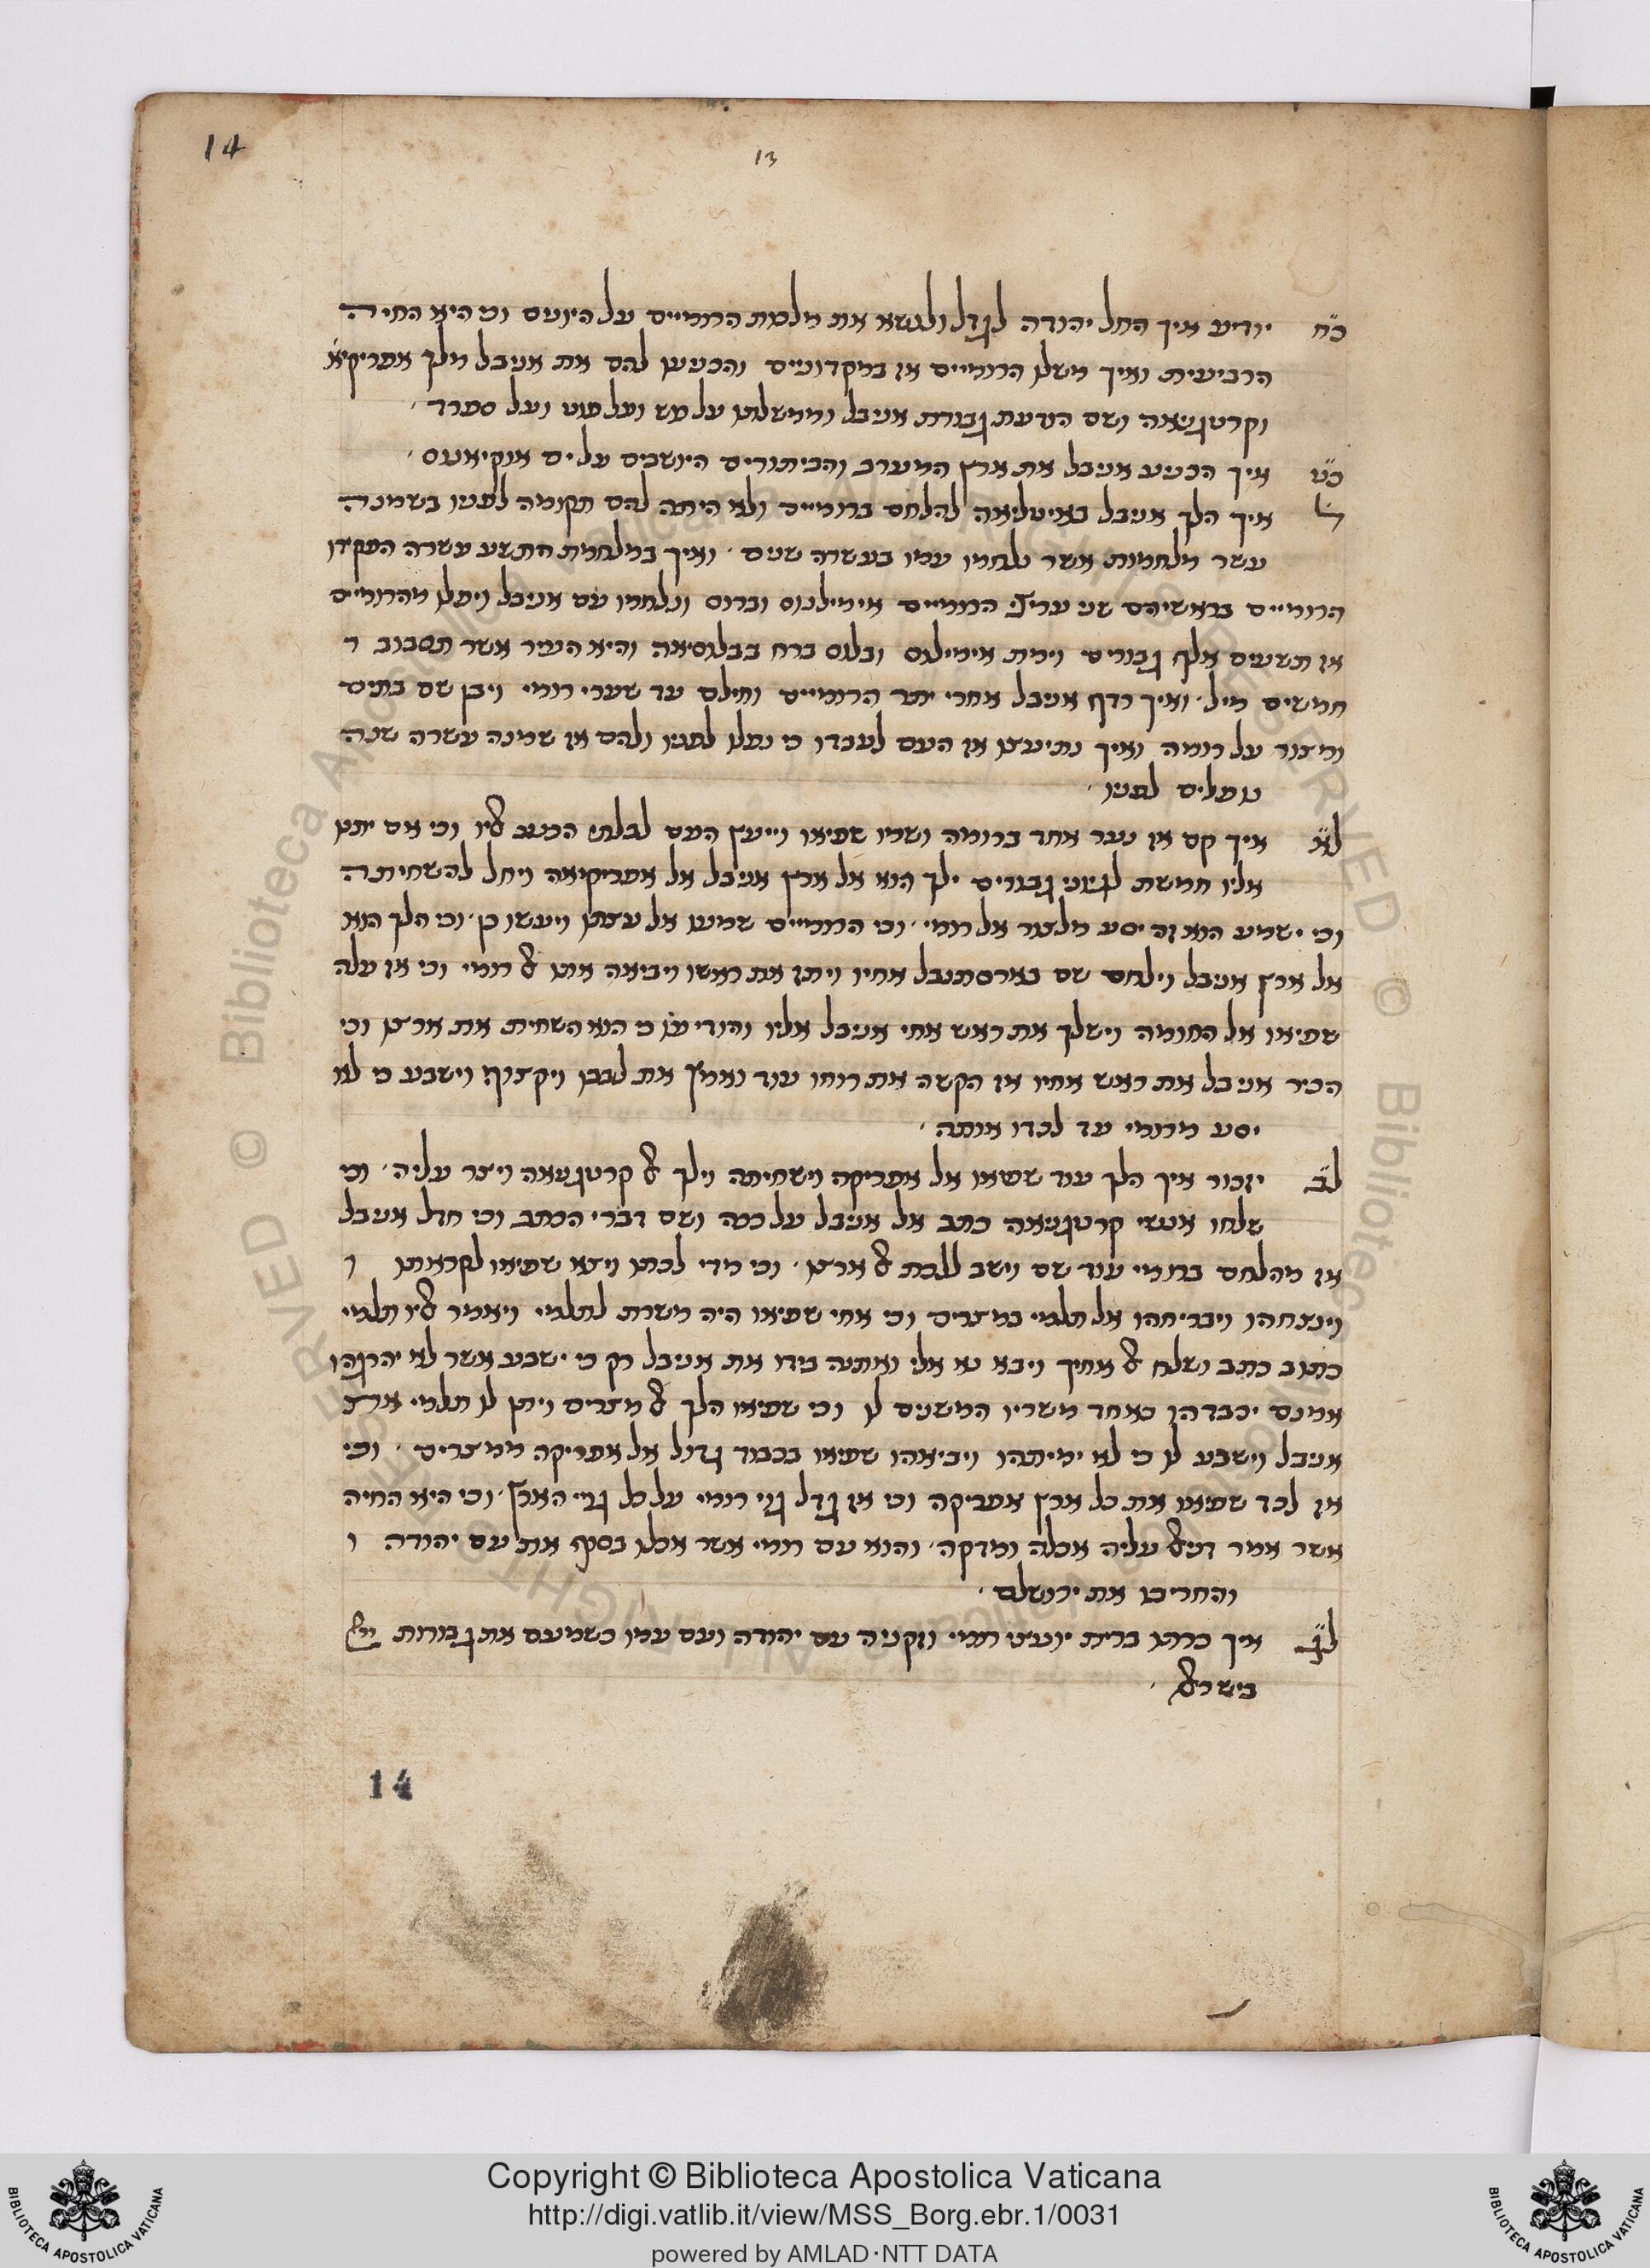 14
13
כ״ח יודיע איך החל יהודה לגדל ולנשא את מלכות הרומיים על היונים וכי היא החיה
הרביעית ואיך משלו הרומיים אז במקדונים והכניעו להם את אניבל מלך אפריקיא
וקרטגנאה ושם הודעת גבורת אניבל וממשלתו על כוש ועל פוט ועל ספרד
כ״ט איך הכניע אניבל את ארץ המערב והכיתורים היושבים על ים אוקיאנוס
ל איך הלך אניבל באיטליאה להלחם ברומיים ולא היתה להם תקומה לפניו בשמנה
עשר מלחמות אשר נלחמו עמו בעשרה שנים ואיך במלחמת התשע עשרה הפקדו
הרומיים בראשיהם שני שרי הרומיים אימילנוס וברוס ונלחמו עם אניבל ויפלו מהרומיים
אז תשעים אלף גבורים וימת אימילנוס ובלוס ברח בבלנוסיאה והיא העיר אשר תסבוב ר
חמשים מיל ואיך רדף אניבל אחרי יתר הרומיים וחילם עד שערי רומי ויבן שם בתים
ומצור על רומה ואיך נתיעצו אז העם לעבדו כי נפלו לפניו ולהם אז שמנה עשרה שנה
נופלים לפניו
ל״א איך קם אז נער אחד ברומה ושמו שפיאו וייעץ העם לבלתי הכנע אליו וכי אם יתנו
אליו חמשת אנשי גבורים ילך הוא אל ארץ אניבל אל אפריקיאה ויחל להשחיתה
וכי ישמע הוא זה יסע מלצור אל רומי וכי הרומיים שמעו אל עצתו ויעשו כן וכי הלך הוא
אל ארץ אניבל וילחם שם באסתרובל אחיו ויתז את ראשו ויביאה אותו אל רומי וכי אז עלה
שפיאו אל החומה וישלך את ראש אחי אניבל אליו והודיעו כי הוא השחית את ארצו וכי
הכיר אניבל את ראש אחיו אז הקשה את רוחו עוד ואמץ את לבבו ויקצוף וישבע כי לא
יסע מרומי עד לכדו אותה
ל״ב יזכור איך הלך עוד שפיאו אל אפריקה וישחיתה וילך אל קרטגנאה ויצר עליה וכי
שלחו אנשי קרטגנאה כתב אל אניבל על ככה ושם דברי הכתב וכי חדל אניבל
אז מהלחם ברומי עוד שם וישב ללכת אל ארצו וכי מדי לכתו ויצא שפיאו לקראתו ו
וינצחהו ויבריחהו אל תלמי במצרים וכי אחי שפיאו היה משרת לתלמי ויאמר אליו תלמי
כתוב כתב ושלח אל אחיך ויבא נא אלי ואתנה בידו את אניבל רק כי ישבע אשר לא יהרגהו
אמנם יכבדהו כאחד משריו המשנים לו וכי שפיאו הלך אל מצרים ויתן לו תלמי את
אניבל וישבע לו כי לא ימיתהו ויביאהו שפיאו בכבוד גדול אל אפריקה ממצרים וכי
אז לכד שפיאו את כל ארץ אפריקה וכי אז גדל גוי רומי על כל גויי הארץ וכי היא החיה
אשר אמר דניאל עליה אכלה ומדקה והוא עם רומי אשר אכלו בסוף את עם יהודה ו
והחריבו את ירושלם
ל״ג איך כרתו ברית יועצי רומי וזקניה עם יהודה ועם עמו כשמעם את גבורות
בישראל
14
Copyright © Biblioteca Apostolica Vaticana
http://digi.vatlib.it/view/MSS_Borg.ebr.1/0031
powered by AMLAD·NTT DATA
BIBLIOTECA APOSTOLICA VATICANA
BIBLIOTECA APOSTOLICA VATICANA